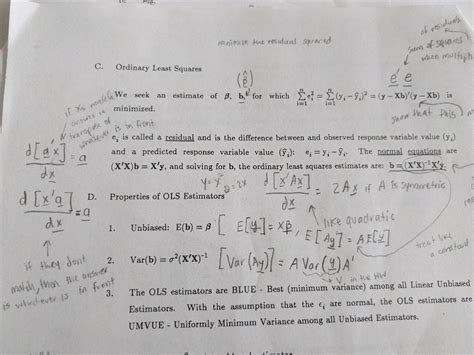 minimize the residual squared
of residuals
sum of squares
when multiplied
e' e
C. Ordinary Least Squares
(β̂)
We seek an estimate of β, b, for which Σ e_i² = Σ (y_i − ŷ_i)² = (y − Xb)'(y − Xb) is
i=1 i=1
minimized.
show that this
e_i is called a residual and is the difference between and observed response variable value (y_i)
and a predicted response variable value (ŷ_i): e_i = y_i − ŷ_i. The normal equations are
(X'X)b = X'y, and solving for b, the ordinary least squares estimates are: b = (X'X)⁻¹X'y.
whatever is in front
d[a'x] = a
dx
d[x'a] = a
dx
d[x'Ax] = 2Ax if A is symmetric
dx
like quadratic
D. Properties of OLS Estimators
1. Unbiased: E(b) = β [E[y] = Xβ, E[Ay] = A E[y]
treat like
a constant
2. Var(b) = σ²(X'X)⁻¹ [Var(Ay)] = A Var(y) A'
if they don't
match, then the answer
is whichever is in front
3. The OLS estimators are BLUE - Best (minimum variance) among all Linear Unbiased
Estimators. With the assumption that the ε_i are normal, the OLS estimators are
UMVUE - Uniformly Minimum Variance among all Unbiased Estimators.